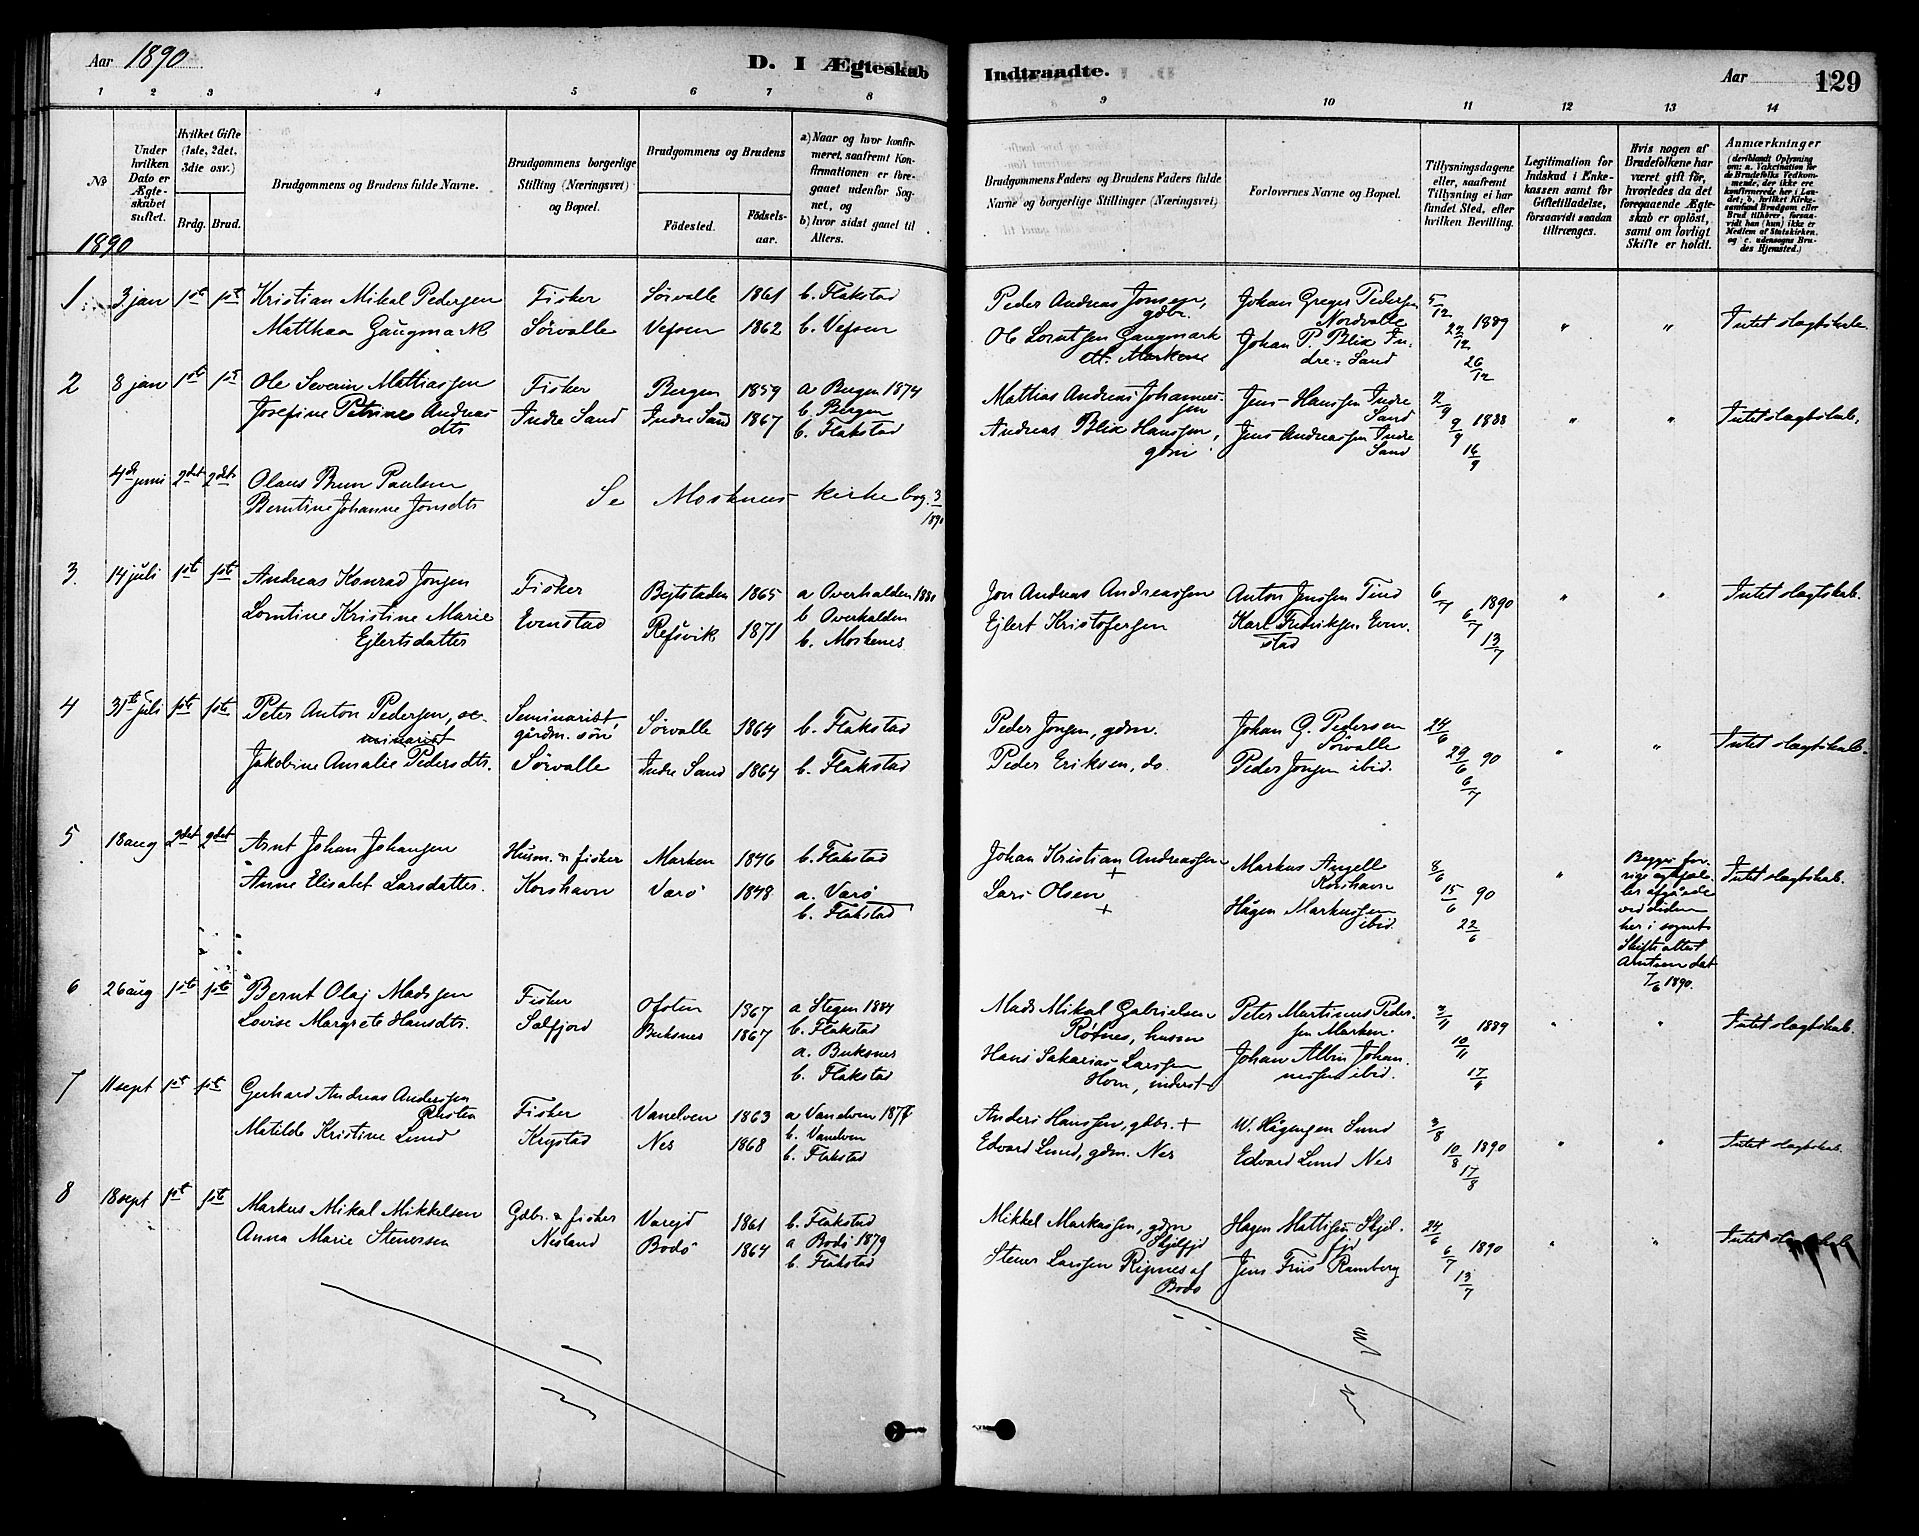 Aar 1890
D. I Ægteskab Indtraadte.
Aar
129
1 2 3 4 5 6 7 8 9 10 11 12 13 14
No
Under hvilken Dato er Ægteskabet stiftet.
Hvilket Gifte (1ste, 2det, 3die osv.)
Brdg. Brud.
Brudgommens og Brudens fulde Navne.
Brudgommens borgerlige Stilling (Næringsvei) og Bopæl.
Brudgommens og Brudens
Fødested.
Fødselsaar.
a) Naar og hvor konfirmeret, saafremt Konfirmationen er foregaaet udenfor Sognet, og
b) hvor sidst gaaet til Alters.
Brudgommens Faders og Brudens Faders fulde Navne og borgerlige Stillinger (Næringsvei)
Forlovernes Navne og Bopæl.
Tillysningsdagene eller, saafremt Tillysning ei har fundet Sted, efter hvilken Bevilling.
Legitimation for Indskud i Enkekassen samt for Giftetilladelse, forsaavidt saadan tiltrænges.
Hvis nogen af Brudefolkene har været gift før, hvorledes da det foregaaende Ægteskab er opløst, samt om lovligt Skifte er holdt.
Anmærkninger
(deriblandt Oplysning om: a. Vakcination for de Brudefolks Vedkommende, der ikke ere konfirmerede her i Landet; b. hvilket Kirkesamfund Brudgom eller Brud tilhører, forsaavidt han (hun) ikke er Medlem af Statskirken, og c. udensogns Brudes Hjemsted.)
1890
1 3 jan 1ste 1ste Kristian Mikal Pedersen Fisker Sörvalle 1861 b. Flakstad Peder Andreas Jonsen, gdbr. Johan Greger Pedersen Nordvalle 5/12 22/12 1889 26/12 " " Intet slægtskab
Matthea Gaugmark Sörvalle Vefsen 1862 b. Vefsen Ol. Lorntsen Gaugmark Johan P. Blix Indre-Sand
2 8 jan 1ste 1ste Ole Severin Mattiassen Fisker Bergen 1859 a Bergen 1874 b. Bergen Mattias Andreas Johannessen Jens Hanssen Indre Sand 2/9 9/9 1888 16/9 " " Intet slægtskab.
Josefine Petrines Andreasdts Indre Sand Indre Sand 1867 b. Flakstad Andreas Blix Hanssen, gdm. Jens Andreassen Indre Sand
4de juni 2det 2det Olaus Brun Paulsen
Berntine Johanne Jonsdts Se Moskenes kirkebog. 3/1890
3. 14 juli 1ste 1ste Andreas Konrad Jonsen Fisker Bejtstaden 1865 a Overhalden 1880 b Overhalden Jon Andreas Andreassen Anton Jenssen Tind 6/7 6/7 1890 13/7 " " Intet slægtskab.
Lorntine Kristine Marie Ejlertsdatter Evenstad Refsvik 1871 b. Moskenes Ejlert Kristofersen Karl Fredriksen Evenstad
4 31te juli 1ste 1ste Peter Anton Pedersen, seminarist Seminarist, gårdm. sön Sörvalle 1864 b. Flakstad Peder Jonsen, gdm. Johan G. Pedersen Sörvalle 24/6 29/6 90 6/7 " " Intet slægtskab.
Jakobine Amalie Pedersdts. Sörvalle Indre Sand 1864 b. Flakstad Peder Eriksen, do. Peder Jonsen ibid.
5 18 aug 2det 2det Arnt Johan Johansen Husm. & fisker Marken 1846 b. Flakstad Johan Kristian Andreassen + Markus Angell Korshavn 8/6 15/6 90 22/6 " Intet slægtskab.
Anne Elisabet Larsdatter. Korshavn Værö 1848 a. Værö b. Flakstad Lars Olsen + Hågen Markussen ibid.
Begges forrige ægtefæller afgåede ved döden her i sognet Skifteattest dat 7/6 1890.
6 26 aug 1ste 1ste Bernt Olaj Madssen Fisker Ofoten 1867 a Stegen 1884 b. Flakstad Mads Mikal Gabrielsen Rötnes, husm Peter Martinus Pedersen Marken. 3/11 10/11 1889 17/11 " " Intet slægtskab.
Lovise Margrete Hansdts. Selfjord Buksnes 1867 a. Buksnes b. Flakstad Hans Sakarias Larssen Horn, inderst Johan Albin Johannessen ibid.
7 11 sept 1ste 1ste Gerhard Andreas Anderssen Fisker Vanelven 1863 a Vanelven 1877 b. Vanelven Anders Hanssen, gdbr. + W. Hågensen Sund 3/8 10/8 1890 17/8 " " Intet slægtskab.
Matilde Kristine Lund Krystad Nes 1868 b. Flakstad Edvard Lund, gdm. Nes Edvard Lund Nes
8 18 sept 1ste 1ste Markus Mikal Mikkelsen Gdbr. & fisker Varejd 1861 b. Flakstad Mikkel Markussen, gdm Skjelfjd Hagen Mattisen Skjelfjd 24/6 6/7 1890 13/7 " " Intet slægtskab
Anna Marie Stenersen Nesland Bodö 1864 a Bodö 1879 b. Flakstad Stener Larssen Ripnes af Bodö Jens Friis Ramberg